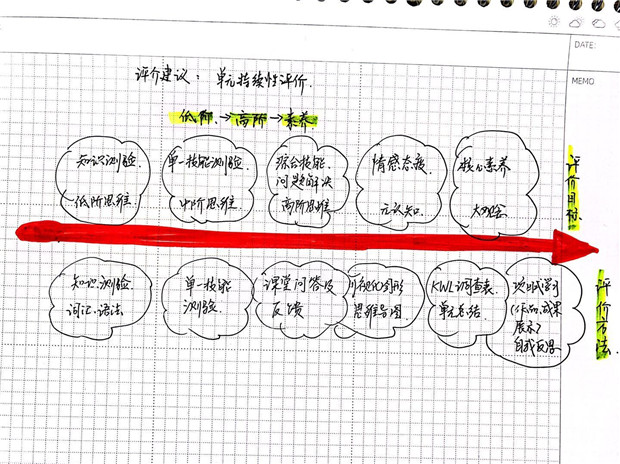 DATE:
MEMO
评介建议：单元持续性评价.
低阶.→高阶→素养.
知识测验
低阶思维
单一技能测验.
中阶思维
综合技能.
问题解决
高阶思维
情感态度
元认知.
核心素养
大观念
评价目标
知识测验
词汇.语法
单一技能
测验.
课堂问答及
反馈
可视化图形
思维导图
KWL调查表.
单元总结.
项目式学习
(作品.成果
展示)
自我反思
评价方法.